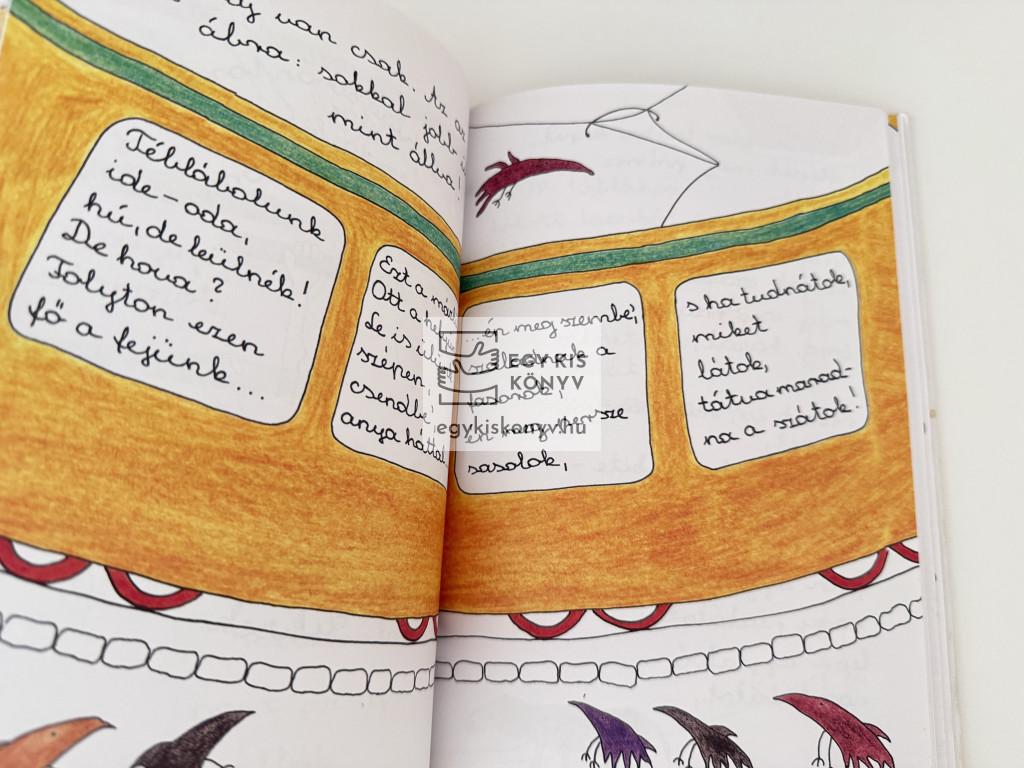 van csak. Az
ábra: sokkal jobb
mint állva!
Téblábolunk
ide-oda,
hú, de leülnék!
De hova?
Folyton ezen
fő a fejünk...
Ezt a
Ott a
Le is
szépen
csendbe',
anya háttal
...én meg szembe',
szállodnak a
sasolok,
s ha tudnátok,
miket
látok,
tátva marad-
na a szátok!
EGY KIS
KÖNYV
egykiskonyv.hu